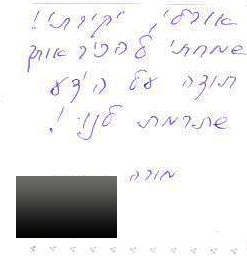 אורלי, יקירתי!
שמחתי להכיר אותך
תודה על הידע
שתרמת לנו!
מורה